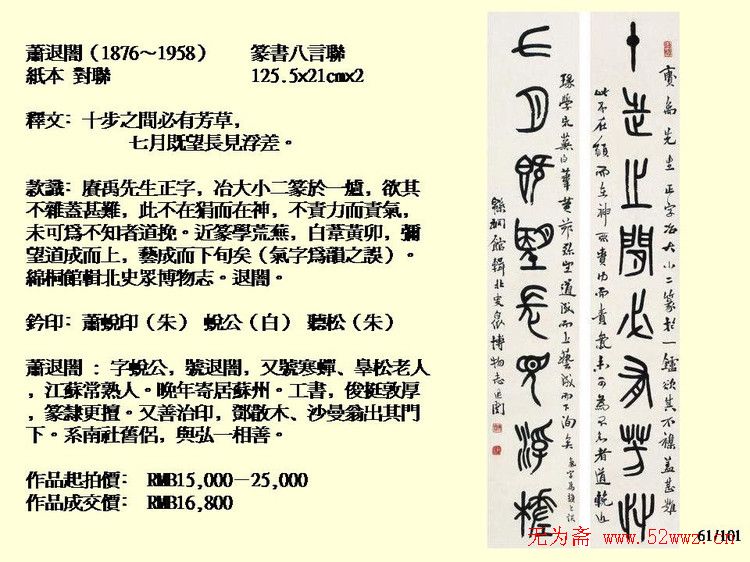 蕭退闇（1876～1958）　　篆書八言聯
紙本 對聯　　125.5x21cmx2
釋文：十步之間必有芳草，
七月既望長見浮差。
款識：賡禹先生正字，冶大小二篆於一爐，欲其
不雜蓋甚難，此不在狷而在神，不責力而責氣，
未可爲不知者道挽。近篆學荒蕪，白葦黃卯，彌
望道成而上，藝成而下句矣（氣字爲韻之誤）。
綿桐館輯北史眾博物志。退闇。
鈐印：蕭蛻印（朱） 蛻公（白） 聽松（朱）
蕭退闇 ：字蛻公，號退闇，又號寒蟬、皋松老人
，江蘇常熟人。晚年寄居蘇州。工書，俊挺敦厚
，篆隸更擅。又善治印，鄧散木、沙曼翁出其門
下。系南社舊侶，與弘一相善。
作品起拍價： RMB15,000－25,000
作品成交價： RMB16,800
十步之間必有芳艸
七月既望長見浮槎
61/101
无为斋 www.52wwz.cn